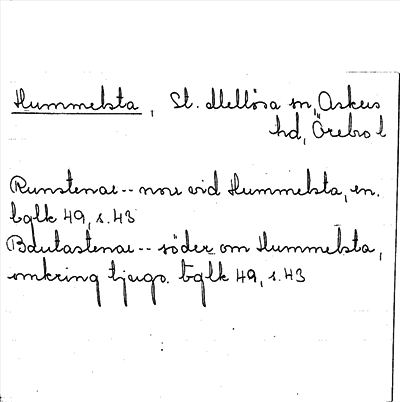 Hummelsta, St. Mellösa sn, Askers
hd, Örebro l
Runstenar -- norr vid Hummelsta, en.
bglk 49, s.43
Bautastenar -- söder om Hummelsta,
omkring tjugo. bglk 49, s.43